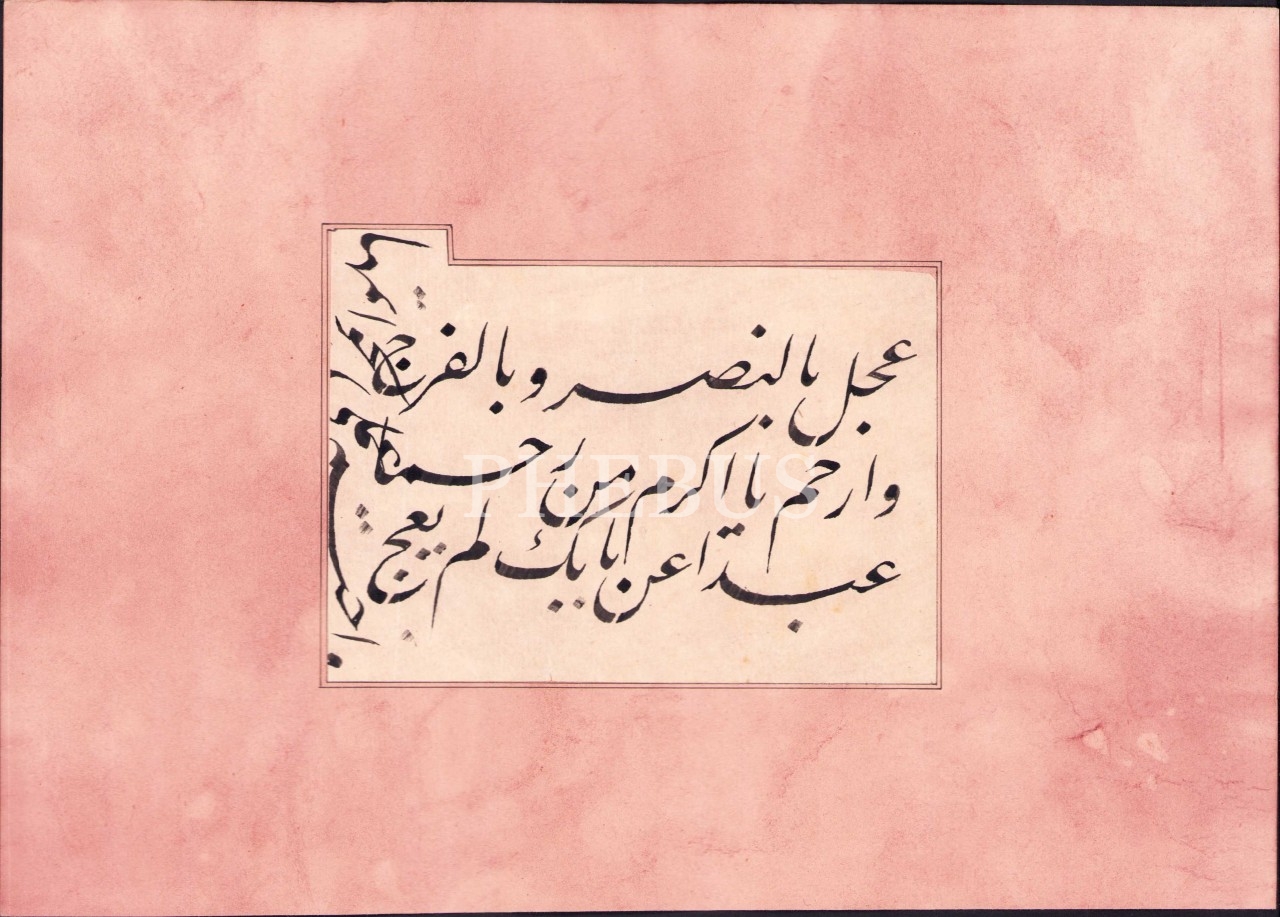 عجل بالنصر وبالفرج
وارحم يا اكرم من رحما
عبدا عن بابك لم يعج
PHEBUS